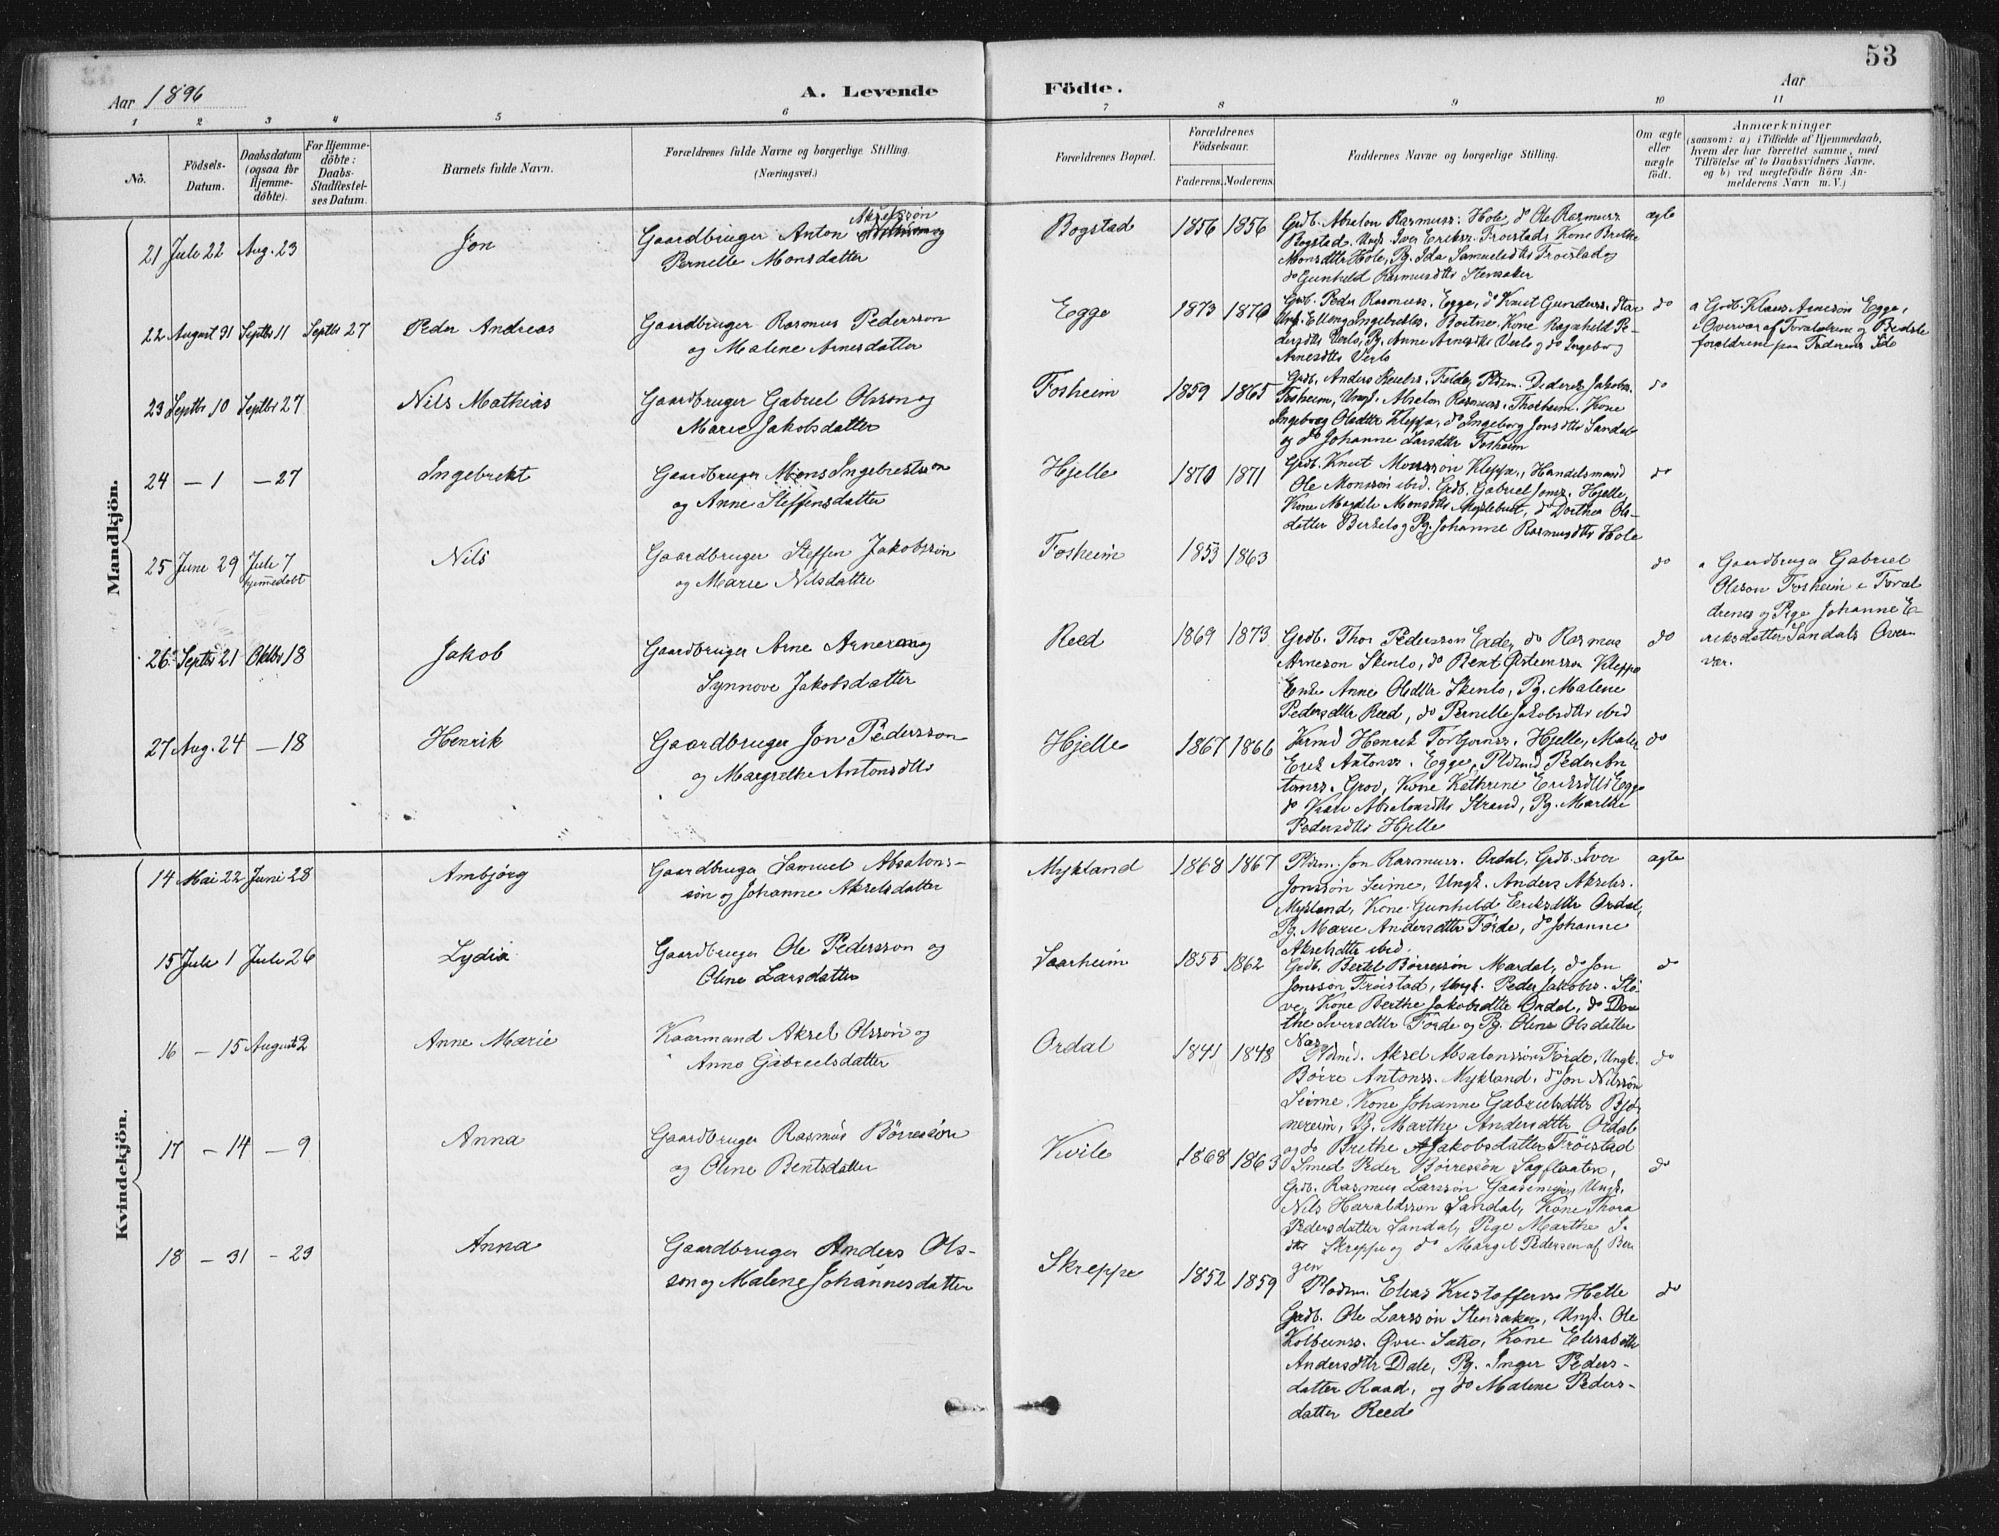 53
Aar 1896
A. Levende Födte.
Aar
1 2 3 4 5 6 7 8 9 10 11
No.
Födsels-Datum.
Daabsdatum (ogsaa for Hjemme-döbte).
For Hjemme-döbte: Daabs-Stadfæstel-ses Datum.
Barnets fulde Navn.
Forældrenes fulde Navne og borgerlige Stilling.
(Næringsvei.)
Forældrenes Bopæl.
Forældrenes Födselsaar.
Faderens. Moderens.
Faddernes Navne og borgerlige Stilling.
Om ægte eller uægte födt.
Anmærkninger
(saasom: a) i Tilfælde af Hjemmedaab, hvem der har forrettet samme, med Tilföielse af to Daabsvidners Navne, og b) ved uægtefödte Börn An-melderens Navn m. V.)
Mandkjön.
21 Juli 22 Aug. 23 Jon
Gaardbruger Anton Akselssön og
Pernille Monsdatter
Bogstad 1856 1856
Grdb. Absalon Rasmuss. Hole, do Ole Rasmuss
Bogstad. Ungk. Iver Erikss. Fröistad, Kone Brithe
Monsdttr Hole, Pg. Ida Samuelsdttr Fröistad og
do Gunhild Rasmusdttr Stensaker
ægte
22 August 31 Septbr 11 Septbr 27 Peder Andreas
Gaardbruger Rasmus Pederssön
og Malene Arnesdatter
Egge 1873 1870
Grdb. Peder Rasmuss. Egge, do Knut Gunderss.
Kone Ragnhild Pe-
dersdttr Verlo, Pg. Anne Arnesdttr Verlo og do Ingeborg
Arnesdttr Verlo
do
a Grdb. Klaus Arnesön Egge,
i Overvær af Forældrene og Bedste
forældrene paa Faderens Side
23 Septbr 10 Septbr 27 Nils Mathias
Gaardbruger Gabriel Olsson og
Marie Jakobsdatter
Fosheim 1859 1865
Fosheim, Ungk. Absalon Rasmuss. Fosheim. Kone
Ingeborg Olsdttr Kleppe, do Ingeborg Jonsdttr Sandal
og do Johanne Larsdttr Fosheim
do
24 - 1 - 27 Ingebrekt
Gaardbruger Mons Ingebrektsön
og Anne Steffensdatter
Hjelle 1870 1871
Grdb. Knut Monssön Kleppe, Handelsmand
Ole Monssön ibid. Grdb. Gabriel Jonss. Hjelle,
Kone Magdele Monsdttr Myklebust, do Dorthea Ols-
datter Berkelo og Pg. Johanne Rasmusdttr Hole
do
25 Juni 29 Juli 7 hjemmedöbt Nils
Gaardbruger Steffen Jakobssön
og Marie Nilsdatter
Fosheim 1853 1863
do
a Gaardbruger Gabriel
Olsson Fosheim i Foræl
drenes og Pige Johanne E-
riksdatter Sandals Over-
vær.
26 Septbr 21 Oktbr 18 Jakob
Gaardbruger Arne Arneson og
Synnove Jakobsdatter
Reed 1869 1873
Grdb. Thor Pedersson Eide, do Rasmus
Arneson Skinlo, do Bent Öisteinsson Kleppe
Enke Anne Olsdttr Skinlo, Pg. Malene
Pedersdttr Reed, do Pernille Jakobsdttr ibid
do
27 Aug. 24 - 18 Henrik
Gaardbruger Jon Pedersson
og Margrethe Antonsdttr
Hjelle 1867 1866
Krmd Henrik Torbjornss. Hjelle, Maler
Erik Antonss. Egge, Pldsmd Peder An
tonss. Grov, Kone Kathrine Eriksdttr Egge
do Kari Absalonsdttr Strand, Pg. Marthe
Pedersdttr Hjelle
do
Kvindekjön.
14 Mai 22 Juni 28 Ambjörg
Gaardbruger Samuel Absalons-
sön og Johanne Akselsdatter
Mykland 1868 1867
Pldsm. Jon Rasmuss. Ordal, Grdb. Iver
Jonssön Seime, Ungk. Anders Akselss.
Mykland, Kone Gunhild Eriksdttr Ordal,
Pg. Marie Andersdttr Förde, do Johanne
Akselsdttr ibid.
ægte
15 Juli 1 Juli 26 Lydia
Gaardbruger Ole Pedersson og
Oline Larsdatter
Saarheim 1855 1862
Grdb. Bertel Börressön Mardal, do Jon
Jonsson Fröistad, Ungk. Peder Jakobs. Stö-
ve, Kone Berthe Jakobsdttr Ordal, do Dor
the Iversdttr Förde og Pg. Oline Olsdatter
Nær
do
16 - 15 August 2 Anne Marie
Kaarmand Aksel Olssön og
Anne Gabrielsdatter
Ordal 1841 1848
Pldsmd. Aksel Absalonssön Förde, Ungk.
Börre Antonss. Mykland, do Jon Nilssön
Seime. Kone Johanne Gabrielsdttr Björ
nereim, Pg. Marthe Andersdttr Ordal
og do Brithe Jakobsdatter Fröistad
do
17 - 14 - 9 Anna
Gaardbruger Rasmus Börressön
og Oline Bentsdatter
Kvile 1868 1863
Smed Peder Börressön Sagflaaten,
Grdb. Rasmus Larssön Gaasemyr, Ungk.
Nils Haraldsson Sandal, Kone Thora
Pedersdatter Sandal, Pige Marthe J.
dttr Skreppe og do Margit Pedersen af Ber
gen
do
18 - 31 - 23 Anna
Gaardbruger Anders Ols-
son og Malene Johannesdatter
Skreppe 1852 1859
Pladsm. Elias Kristofferss Hetle
Grdb. Ole Larssön Stensaker, Ungk. Ole
Kolbeinss. Övre Sætre, Kone Elisabeth
Andersdttr Dale, Pg. Inger Peders-
datter Raad, og do Malene Peders-
datter Reed
do